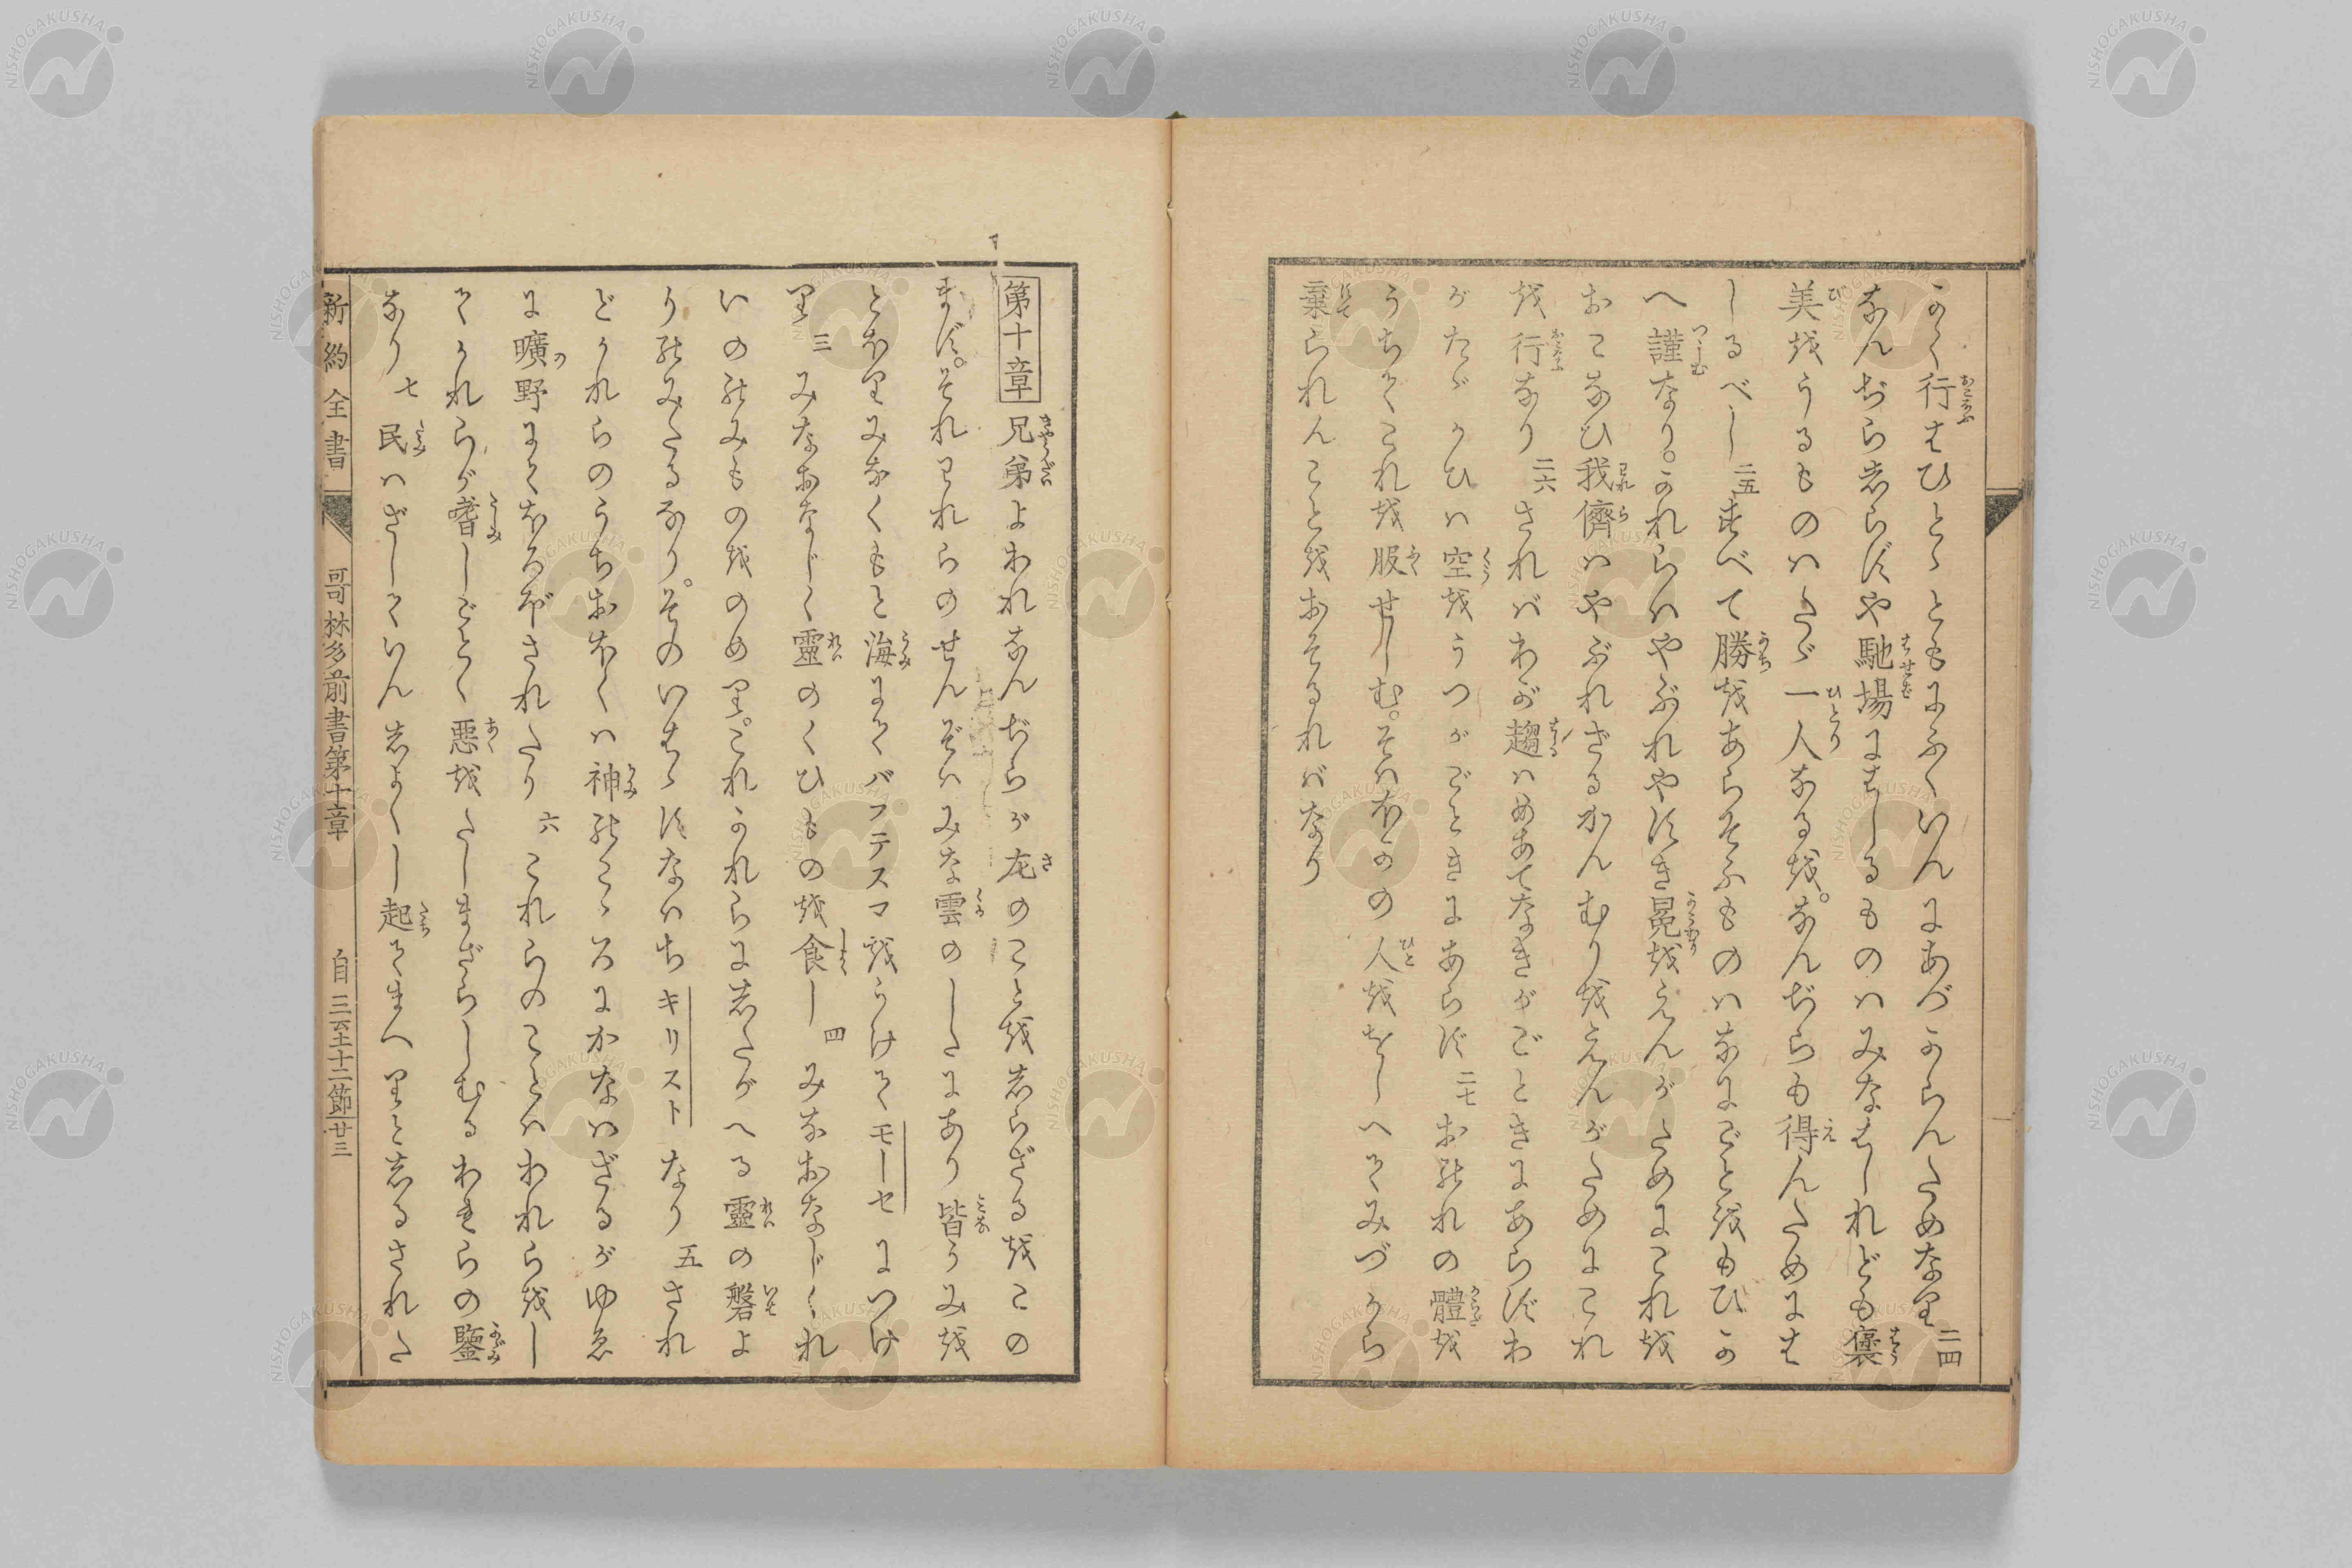 かく行はひとゝともにふくいんにあづからんためなり 二四
なんぢらしらずや馳場にはしるものハみなはしれども褒
美をうるものハたゞ一人なるを。なんぢらも得んためには
しるべし 二五 すべて勝をあらそふものハなにごとをもひか
へ謹なり。かれらハやぶれやすき冕をえんがためにこれを
おこなひ我儕ハやぶれざるかんむりをえんがためにこれ
を行なり 二六 されバわが趨ハめあてなきがごときにあらずわ
がたゝかひハ空をうつがごときにあらず 二七 おのれの體を
うちてこれを服せしむ。そハほかの人ををしへてみづから
棄られんことをおそるれバなり
第十章 兄弟よわれなんぢらが左のことをしらざるをこの
まず。それわれらのせんぞハみな雲のしたにあり皆うみを
とほりみなくもと海にてバプテスマをうけてモーセにつけ
り 三 みなおなじく靈のくひものを食し 四 みなおなじくれ
いののみものをのめり。これかれらにしたがへる靈の磐よ
りのみたるなり。そのいはゝすなハちキリストなり 五 され
どかれらのうちおほくハ神のこゝろにかなハざるがゆゑ
に曠野にてほろぼされたり 六 これらのことハわれらをし
てかれらが嗜しごとく惡をたしまざらしむるわれらの鑒
なり 七 民ハざしていんしよくし起てまへりとしるされた
新約全書 哥林多前書第十章 自三至十二節 廿三